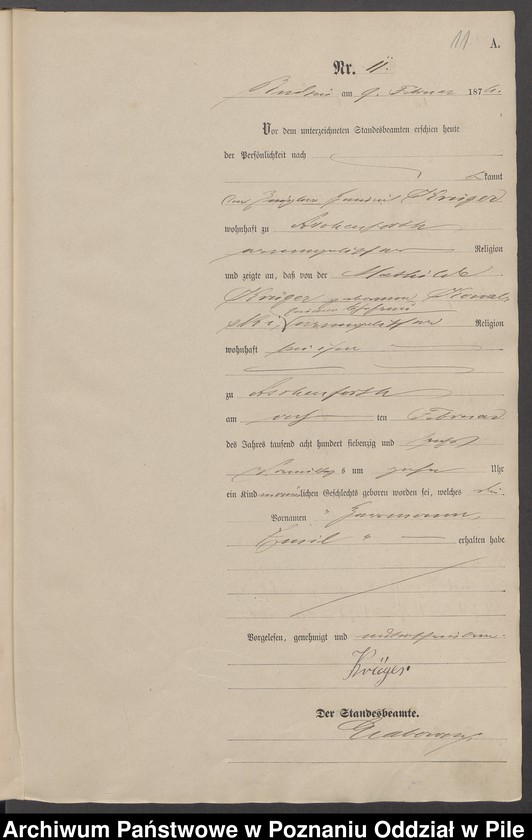 11 A.
Nr. 11.
am 9. Februar 1876.
Vor dem unterzeichneten Standesbeamten erschien heute
der Persönlichkeit nach
bekannt
der Krüger
wohnhaft zu Aschenforth
evangelischer Religion
und zeigte an, daß von der Mathilde
Krüger geborenen Kowal-
seiner Ehefrau
ski, evangelischer Religion
wohnhaft bei ihm
zu Aschenforth
am ten Februar
des Jahres tausend acht hundert siebenzig und sechs
Vormittags um zehn Uhr
ein Kind männlichen Geschlechts geboren worden sei, welches die
Vornamen " Herrmann
Emil " erhalten habe
Vorgelesen, genehmigt und unterschrieben.
Krüger
Der Standesbeamte.
Archiwum Państwowe w Poznaniu Oddział w Pile